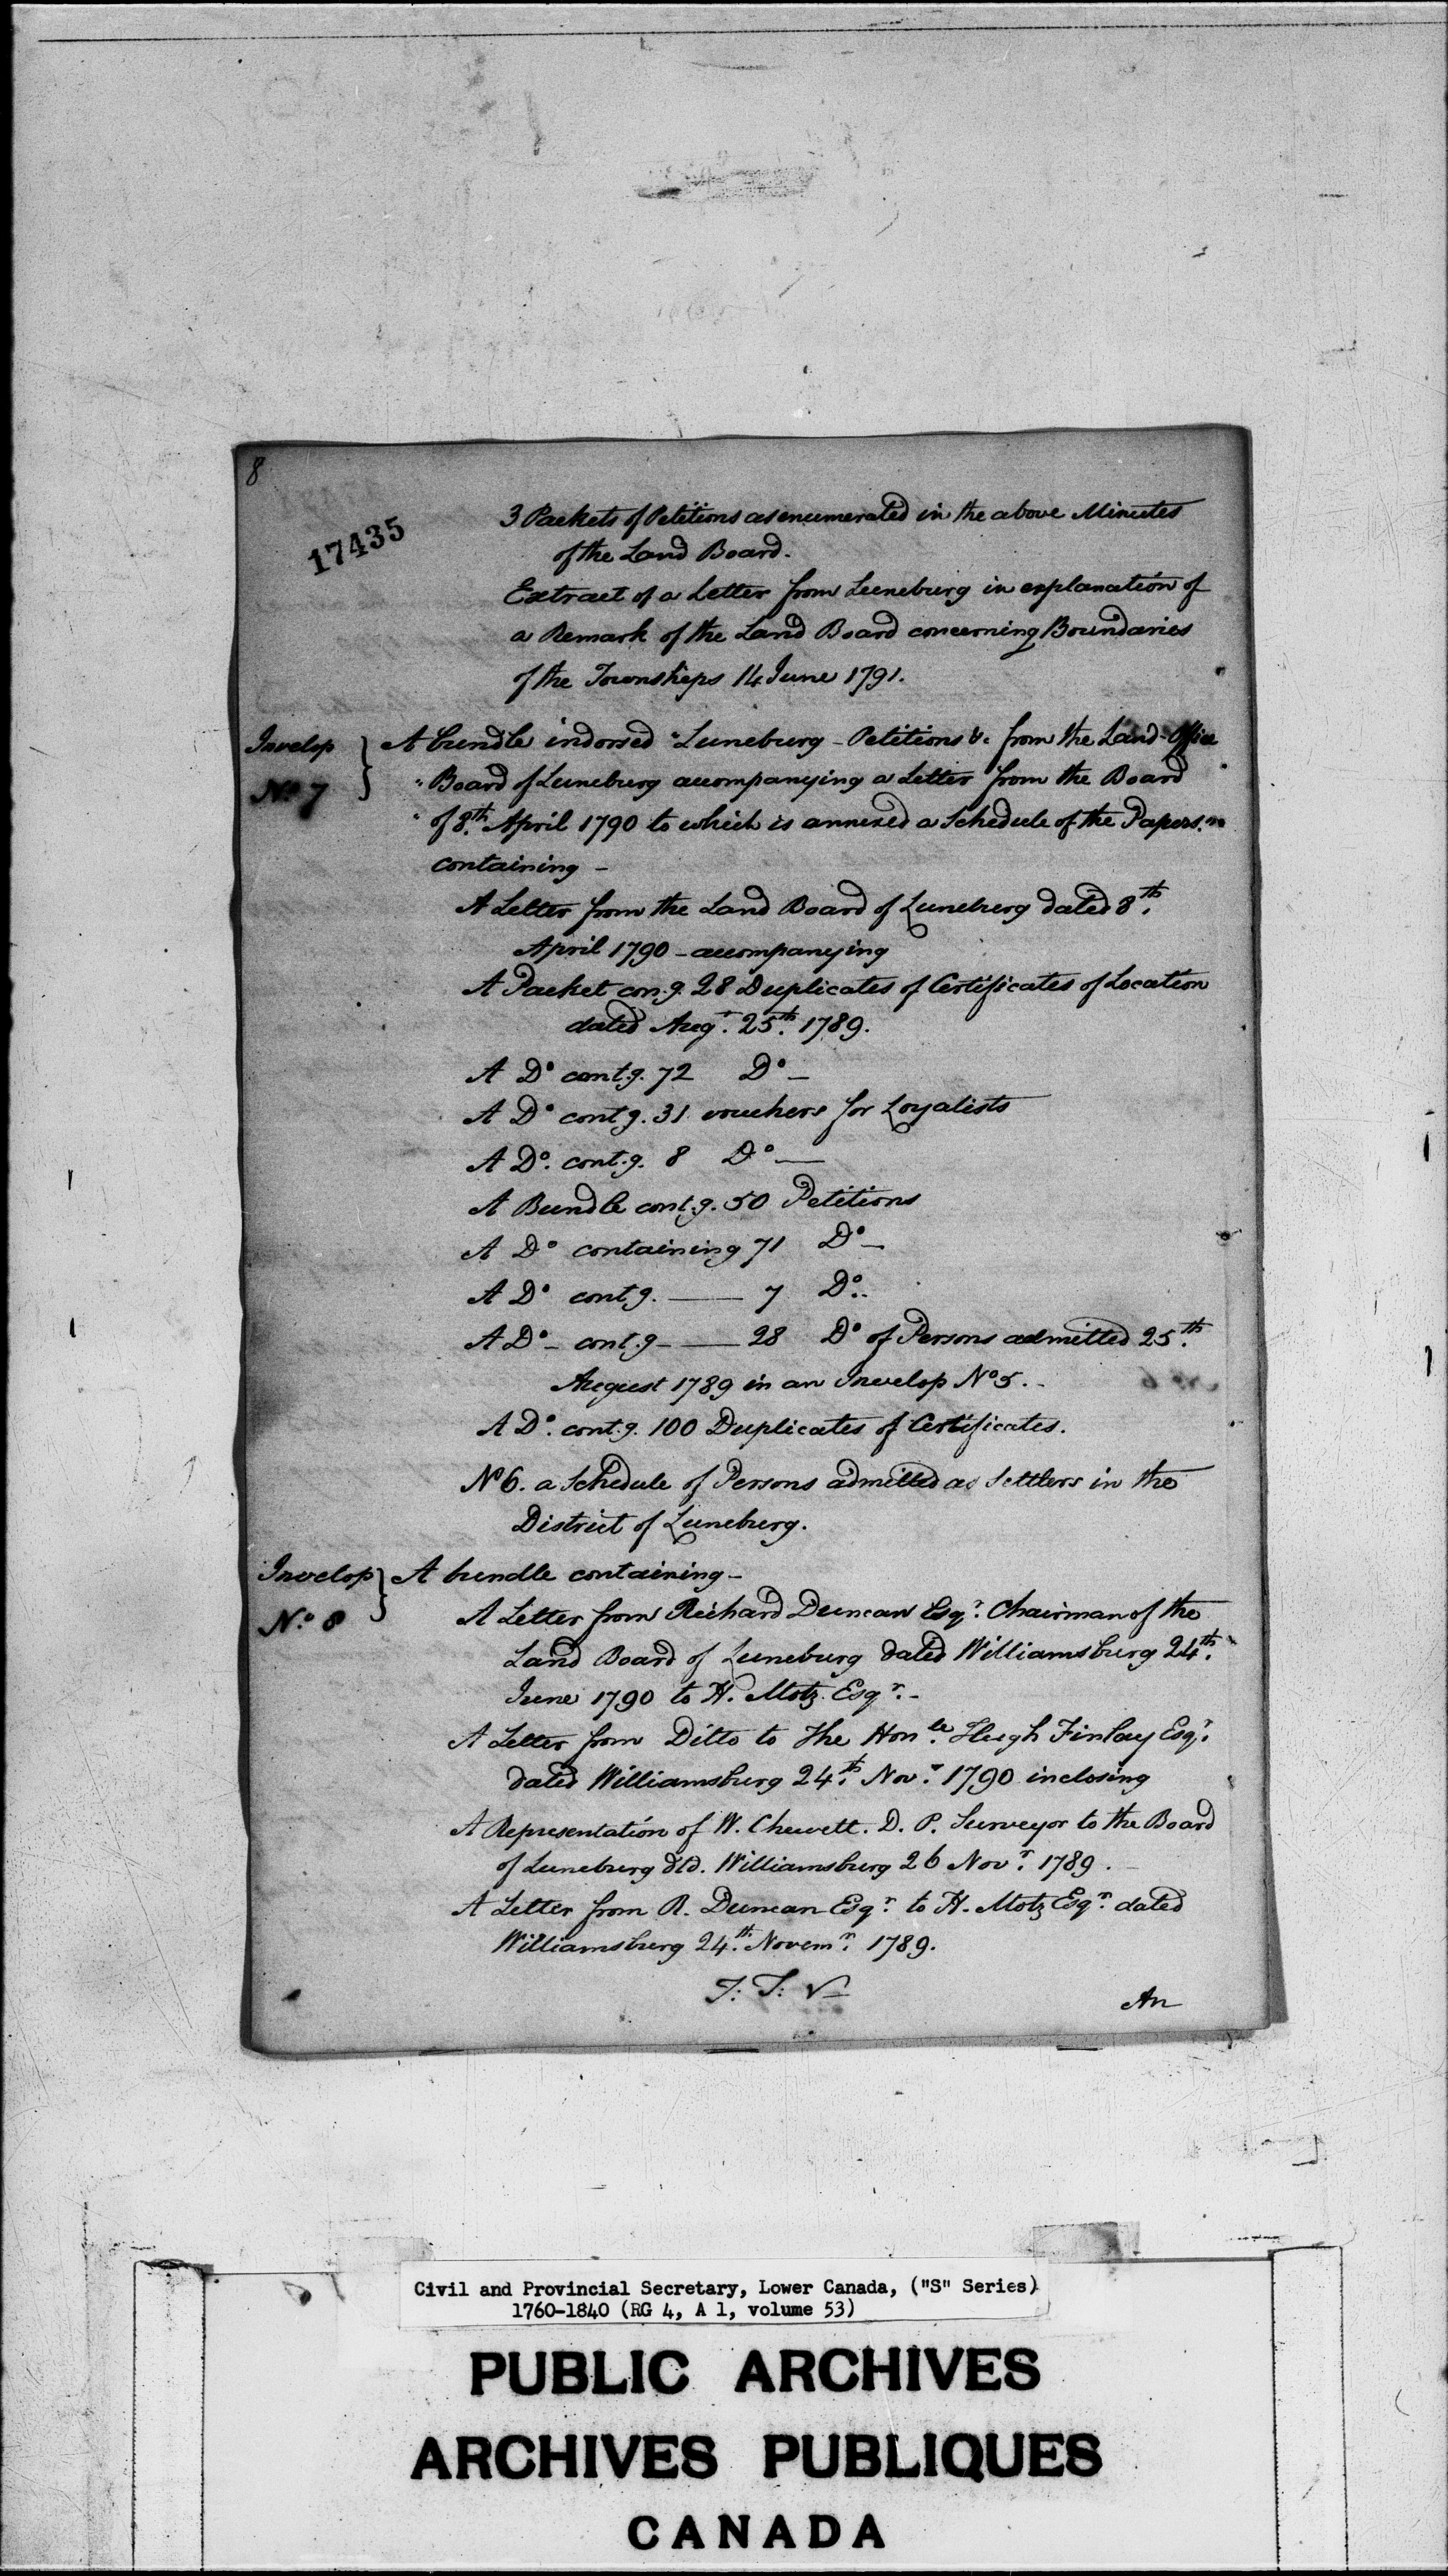 8
17435
3 Packets of Petitions as enumerated in the above Minutes
of the Land Board.
Extract of a Letter from Luneburg in explanation of
a Remark of the Land Board concerning Boundaries
of the Townships 14 June 1791.
Invelop No 7 } A bundle indorsed "Luneburg - Petitions &c from the Land-Office
"Board of Luneburg accompanying a Letter from the Board
"of 8.th April 1790 to which is annexed a Schedule of the Papers."
containing -
A Letter from the Land Board of Luneburg dated 8th.
April 1790 - accompanying
A Packet con.g. 28 Duplicates of Certificates of Location
dated Augt. 25th. 1789.
A Do cont.g. 72 Do -
A Do cont.g. 31 vouchers for Loyalists
A Do. cont.g. 8 Do —
A Bundle cont.g. 50 Petitions
A Do containing 71 Do -
A Do cont.g. — 7 Do..
A Do - cont.g - — 28 Do of Persons admitted 25th.
August 1789 in an Invelop No 5. -
A Do. cont.g. 100 Duplicates of Certificates.
No 6. a Schedule of Persons admitted as Settlers in the
District of Luneburg.
Invelop No. 8 } A bundle containing -
A Letter from Richard Duncan Esqr. Chairman of the
Land Board of Luneburg dated Williamsburg 24th.
June 1790 to H. Motz Esqr. -
A Letter from Ditto to The Honle. Hugh Finlay Esqr.
dated Williamsburg 24th. Novr. 1790 inclosing
A Representation of W. Chewett. D. P. Surveyor to the Board
of Luneburg dtd. Williamsburg 26 Novr. 1789.
A Letter from R. Duncan Esqr. to H. Motz Esqr. dated
Williamsburg 24th. Novemr. 1789.
An
Civil and Provincial Secretary, Lower Canada, ("S" Series)
1760-1840 (RG 4, A 1, volume 53)
PUBLIC ARCHIVES
ARCHIVES PUBLIQUES
CANADA